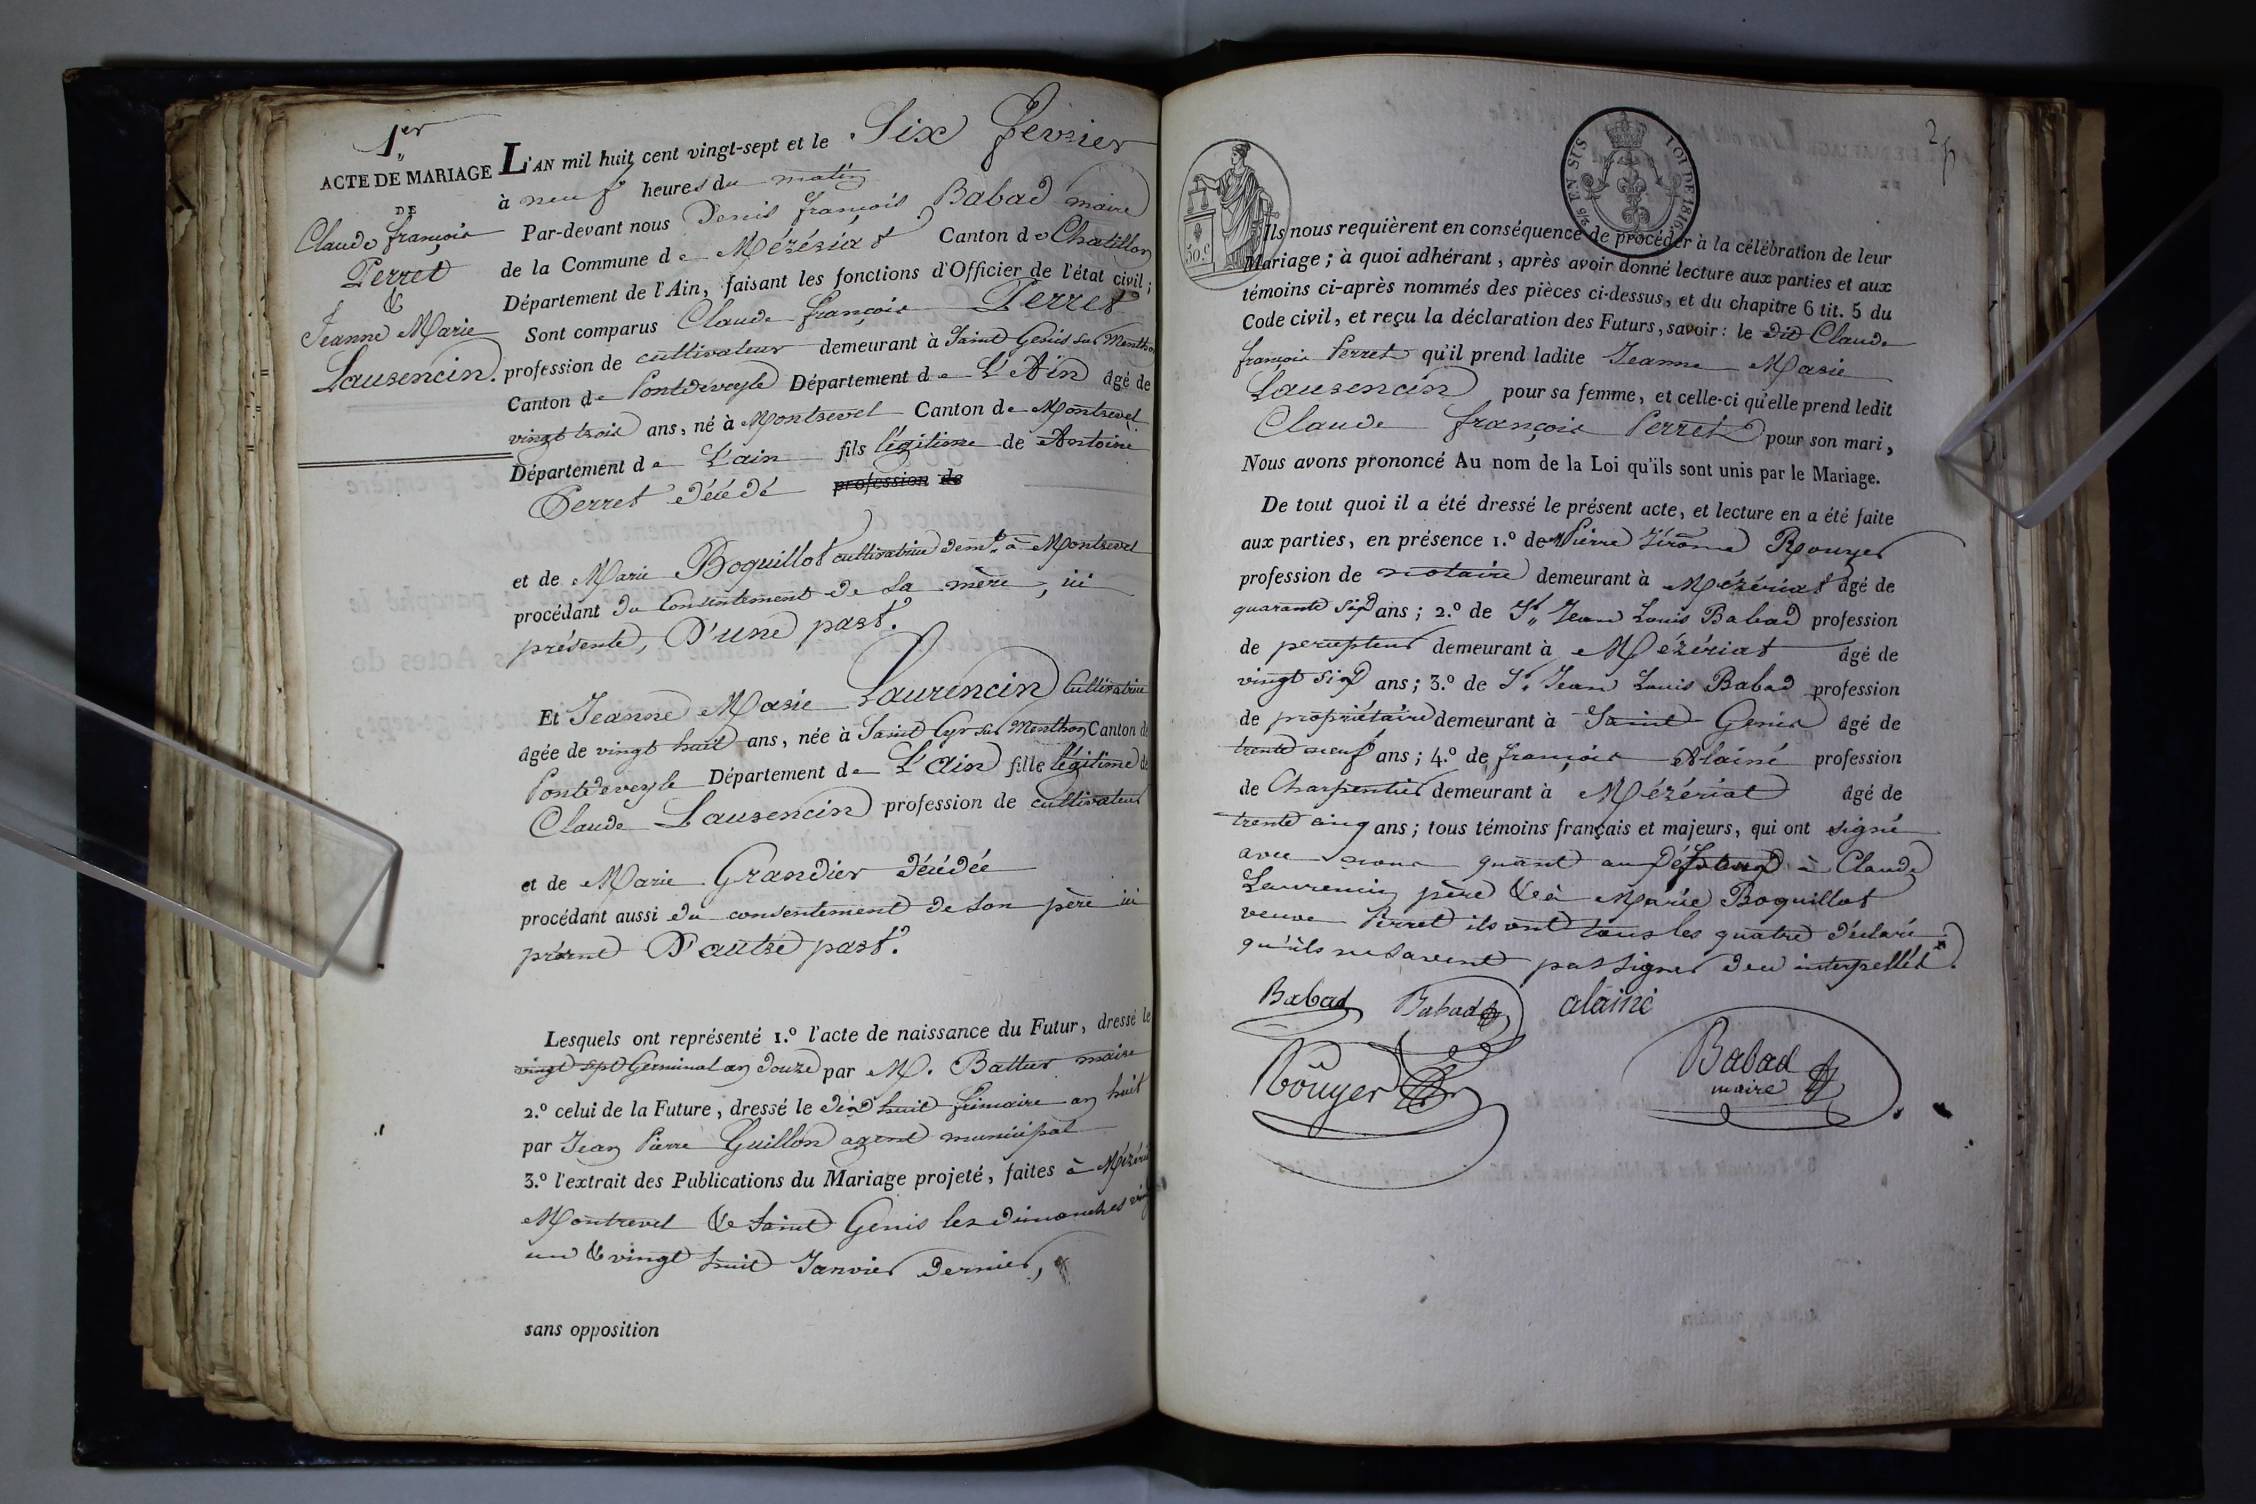 1er
ACTE DE MARIAGE
DE
Claude françois
Perret
&
Jeanne Marie
Laurencin.
L'AN mil huit cent vingt-sept et le Six fevrier
à neuf heures du matin
Par-devant nous Denis françois Babad maire
de la Commune de Mézériat Canton de Chatillon
Département de l'Ain, faisant les fonctions d'Officier de l'état civil;
Sont comparus Claude françois Perret
profession de cultivateur demeurant à Saint Genis sur Menthon
Canton de Pontdeveyle Département de L'Ain âgé de
vingt trois ans, né à Montrevel Canton de Montrevel
Département de L'ain fils légitime de Antoine
Perret décédé profession de
et de Marie Boquillot cultivatrice demt. à Montrevel
procédant du Consentement de sa mère, ici
présente, D'une part.
Et Jeanne Marie Laurencin Cultivatrice
âgée de vingt huit ans, née à Saint Cyr sur Menthon Canton de
Pontdeveyle Département de L'Ain fille légitime de
Claude Laurencin profession de cultivateur
et de Marie Grandier décédée
procédant aussi du consentement de son père ici
présent D'autre part.
Lesquels ont représenté 1.º l'acte de naissance du Futur, dressé le
vingt sept Germinal an douze par M. Battur maire
2.º celui de la Future, dressé le dix huit frimaire an huit
par Jean Pierre Guillon agent municipal
3.º l'extrait des Publications du Mariage projeté, faites à Mézériat
Montrevel & Saint Genis les dimanches vingt
un & vingt huit Janvier dernier,
sans opposition
2
50 C
25 EN SUS
LOI DE 1816
Ils nous requièrent en conséquence de procéder à la célébration de leur
Mariage; à quoi adhérant, après avoir donné lecture aux parties et aux
témoins ci-après nommés des pièces ci-dessus, et du chapitre 6 tit. 5 du
Code civil, et reçu la déclaration des Futurs, savoir: le dit Claude
françois Perret qu'il prend ladite Jeanne Marie
Laurencin pour sa femme, et celle-ci qu'elle prend ledit
Claude françois Perret pour son mari,
Nous avons prononcé Au nom de la Loi qu'ils sont unis par le Mariage.
De tout quoi il a été dressé le présent acte, et lecture en a été faite
aux parties, en présence 1.º de Pierre Jérôme Rouyer
profession de notaire demeurant à Mézériat âgé de
quarante six ans; 2.º de Sr. Jean Louis Babad profession
de percepteur demeurant à Mézériat âgé de
vingt six ans; 3.º de Sr. Jean Louis Babad profession
de propriétaire demeurant à Saint Genis âgé de
trente neuf ans; 4.º de françois Alainé profession
de Charpentier demeurant à Mézériat âgé de
trente cinq ans; tous témoins français et majeurs, qui ont signé
avec nous quant au à Claude
Laurencin père & à Marie Boquillot
veuve Perret ils ont tous les quatre déclaré
qu'ils ne savent pas signer de ce interpellés.
Babad Babad alainé
Rouyer
Babad
maire